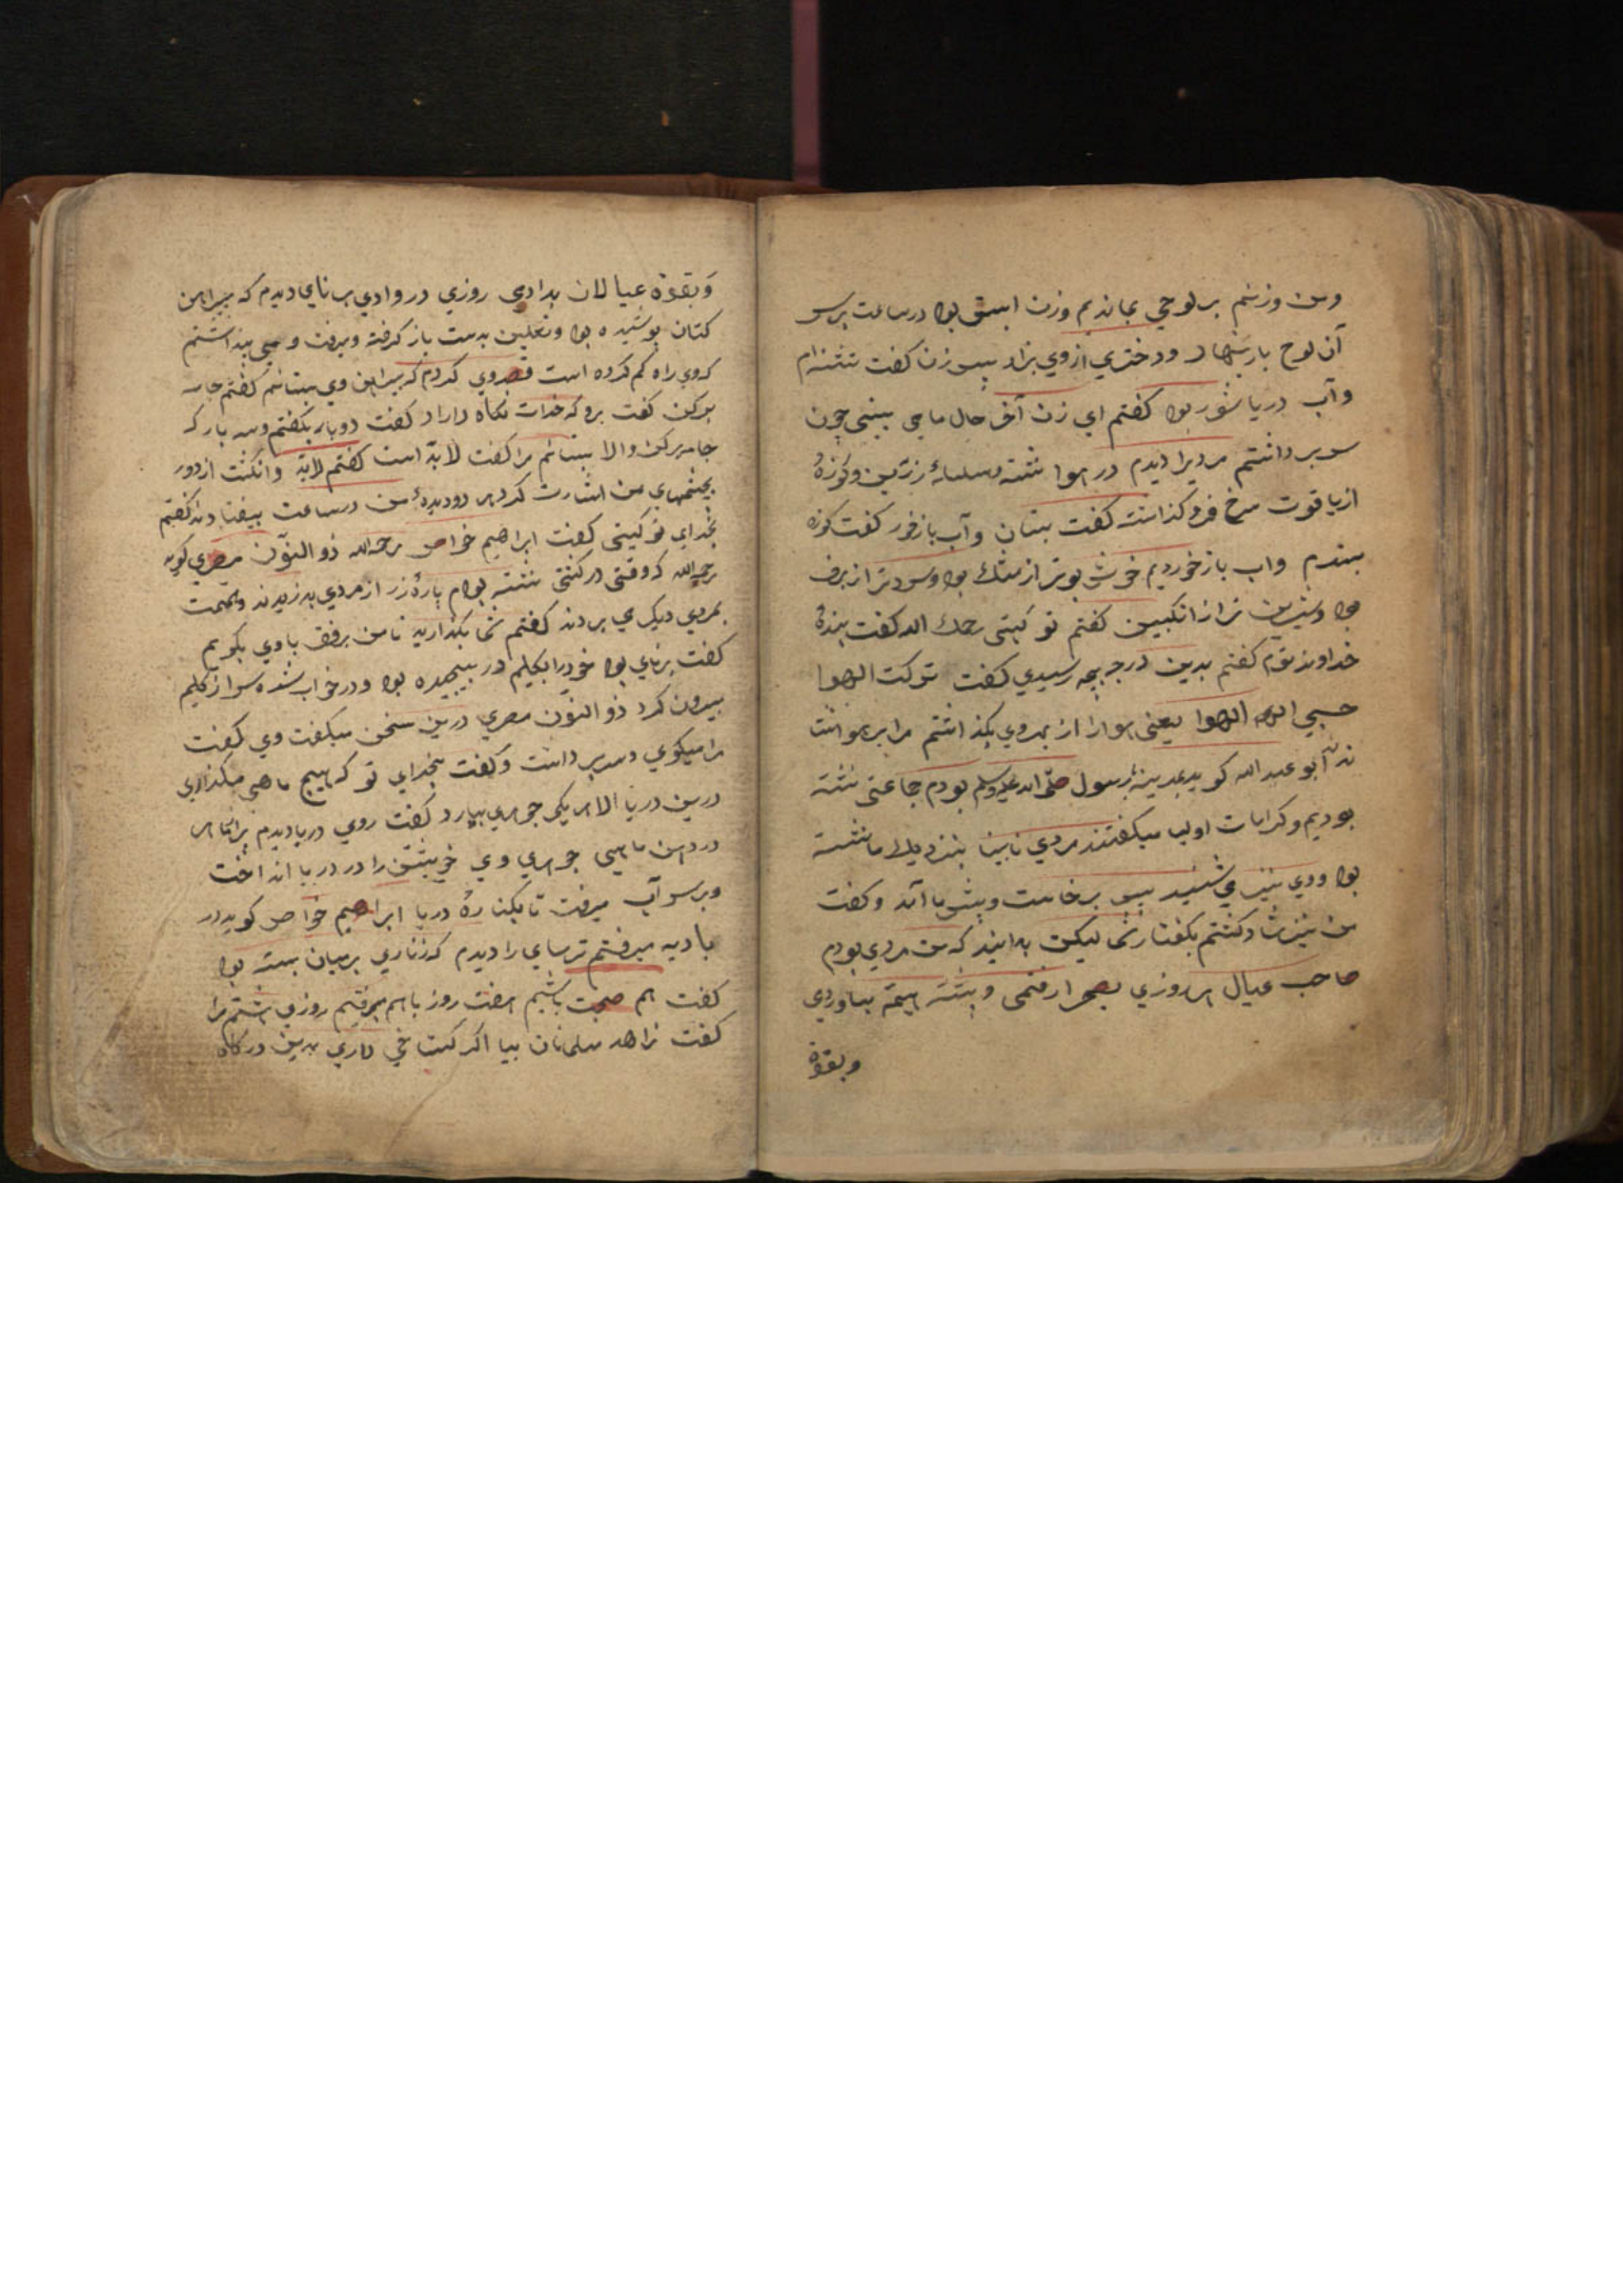 ومن وزنم بر لوحي بماندم وزن ابستن بود در ساعت برسر
آن لوح بار بنهاد ودختري ازوي بزاد پس زن كفت تشنه ام
وآب دريا شور بود كفتم اي زن آخر حال ما مي بيني چون
سر برداشتم مرديرا ديدم در هوا نشسته وسلسلهٔ زرّين وكوزهٔ
از ياقوت سرخ فرو كذاشته كفت بستان وآب باز خور كفت كوزه
بستدم واب باز خورديم خوش بوتر از مشك بود وسردتر از برف
بود وشيرين تر از انكبين كفتم تو كيستي رحمك الله كفت بندهٔ
خداوند توم كفتم بدين درجه بچه رسيدي كفت تركت الهوا
حسبي الله الهوا يعني هوا را از بهر وي بكذاشتم مرا بر هوا نشاند
ابو عبد الله كويد بمدينهٔ رسول صلّى الله عليه وسلم بودم جماعتي نشسته
بوديم وكرامات اوليا ميكفتند مردي نابينا بنزديك ما نشسته
بود ووي نيز مي شنيد پس برخاست وپيش ما آمد وكفت
من نيز شاد كشتم بكفتار شما ليكن بدانيد كه من مردي بودم
صاحب عيال هر روزي بصحرا رفتمي وپشته هيمه بياوردي
وبقوة
وَبقوة عيالان بدادي روزي در وادي برنايي ديدم كه پيراهن
كتان پوشيده بود ونعلين بدست باز كرفته وميرفت ومي پنداشتم
كه وي راه كم كرده است قصد وي كردم كه پيراهن وي بستانم كفتم جامه
بركن كفت برو كه خدات نكاه داراد كفت دوبار بكفتم وسه بار كه
جامه بركن والا بستانم مرا كفت لابدّ است كفتم لابدّ وانكشت از دور
بچشمهاي من اشارت كرد هر دو ديدهٔ من در ساعت بيفتادند كفتم
بخداي تو كيستي كفت ابراهيم خواص رحمه الله ذو النوّن مصري كويد
رحمه الله كه وقتي در كشتي نشسته بودم پارهٔ زر از مردي بدزديدند وتهمت
بمردي ديكر مي بردند كفتم شما بكذاريد تا من برفق با وي بكويم
كفت برناي بود خود را بكليم در پيچيده بود ودر خواب شده سر از كليم
بيرون كرد ذو النوّن مصري درين سخن ميكفت وي كفت
مرا ميكوي وسر برداشت وكفت بخداي تو كه هيچ ماهي مكذاري
درين دريا الا هر يكي جوهري بيارد كفت روي دريا ديدم پر از ماهي
در دهن ماهي جوهري وي خويشتن را در دريا انداخت
وبر سر آب ميرفت تا بكنارهٔ دريا ابراهيم خواص كويد در
باديه ميرفتم ترسايي را ديدم كه زناري بر ميان بسته بود
كفت هم صحبت باشيم هفت روز با هم برفتيم روزي هشتم مرا
كفت زاهد مسلمانان بيا اكر كستاخي داري بدين دركاه